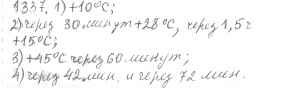 1337. 1) +10°C;
2) через 30 минут +28°C, через 1,5 ч
+15°C;
3) +45°C через 60 минут;
4) через 42 мин. и через 72 мин.